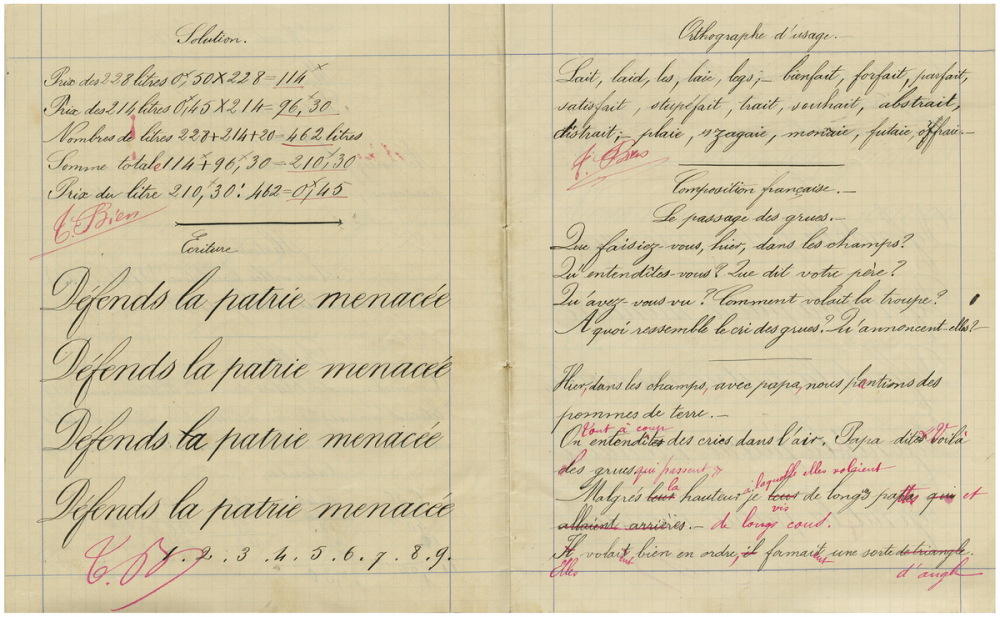 Solution.
Prix des 228 litres 0f,50 X 228 = 114f
Prix des 214 litres 0f45 X 214 = 96f,30
Nombres de litres 228+214+20 = 462 litres
Somme totale 114f + 96f,30 = 210f,30
Prix du litre 210f,30 : 462 = 0f,45
T. Bien
Écriture
Défends la patrie menacée
Défends la patrie menacée
Défends la patrie menacée
Défends la patrie menacée
1. 2. 3. 4. 5. 6. 7. 8. 9.
T. B
Orthographe d'usage.—
Lait, laid, les, laie, legs ;— bienfait, forfait, parfait,
satisfait, stupéfait, trait, souhait, abstrait,
distrait ;— plaie, zagaie, monnaie, futaie, effraie.—
T. Bien
Composition française.—
Le passage des grues.—
Que faisiez-vous, hier, dans les champs ?
Qu'entendîtes-vous ? Que dit votre père ?
Qu'avez-vous vu ? Comment volait la troupe ?
A quoi ressemble le cri des grues ? Qu'annoncent-elles ?
Hier, dans les champs, avec papa, nous plantions des
pommes de terre.—
Tout à coup
On entendîtes des cries, dans l'air. Papa dites voilà
des grues qui passent.
la à laquelle elles volaient
Malgrés leur hauteur je vis de longs pattes et
allaient arrières.— de longs cous.
Il volait bien en ordre, il formait une sorte de triangle.
Elles ent ent d'angle